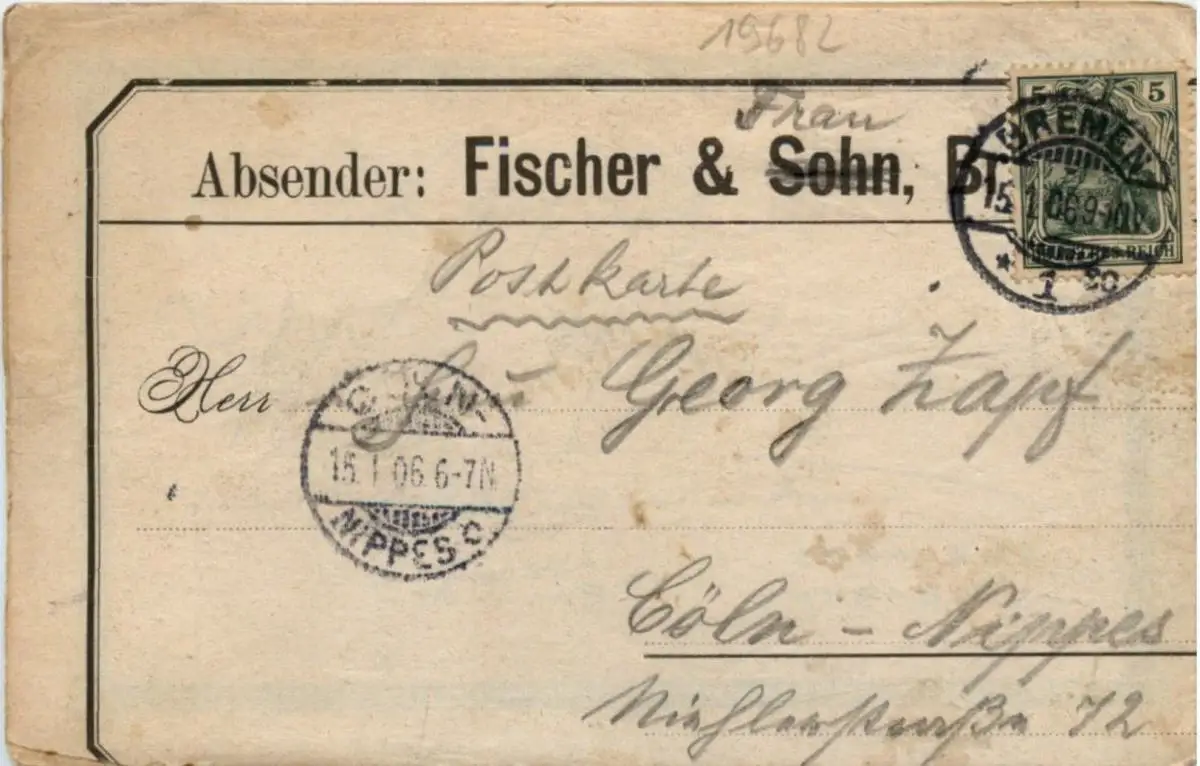 19682
Frau
Absender: Fischer & Sohn, Br
5 5
BREMEN
15. 1. 06. 9-10V
* 1 *
DEUTSCHES REICH
Postkarte
Herr Georg Zapf
CÖLN-
15. 1 06. 6-7N
NIPPES
Cöln - Nippes
Niehlerstraße 72